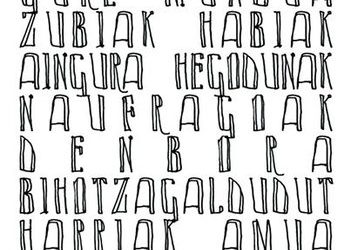 ZUBIAK HABIAK
AINGURA HEGODUNAK
NAUFRAGOAK
DENBORA
BIHOTZAGALDUDUT
HARRIAK AMUA